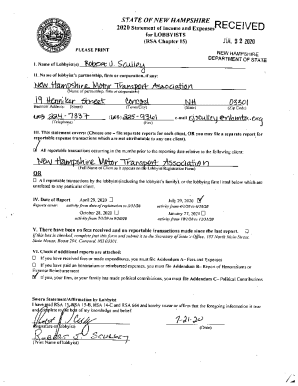 STATE OF NEW HAMPSHIRE
2020 Statement of Income and Expenses
for LOBBYISTS
(RSA Chapter 15)
RECEIVED
JUL 22 2020
NEW HAMPSHIRE
DEPARTMENT OF STATE
PLEASE PRINT
I. Name of Lobbyist(s) Robert J. Sculley
II. Name of lobbyist's partnership, firm or corporation, if any:
New Hampshire Motor Transport Association
(Name of partnership, firm or corporation)
19 Henniker Street Concord NH 03301
(Town/City) (State) (Zip Code)
603 224-7337 603 225-9361 e-mail rjsculley@nhmta.org
(Telephone) (Fax)
III. This statement covers: (Choose one - file separate reports for each client, OR you may file a separate report for
reportable expense transactions which are not attributable to any one client).
All reportable transactions occurring in the months prior to the reporting date relative to the following client:
New Hampshire Motor Transport Association
(Full Name of Client as it appears on the Lobbyist Registration Form)
OR
All reportable transactions by the lobbyist (including the lobbyist's family), or the lobbying firm listed below which are
unrelated to any particular client.
IV. Date of Report April 29, 2020 July 29, 2020
Reports cover: activity from date of registration to 3/31/20 activity from 4/1/20 to 6/30/20
October 28, 2020 January 27, 2021
activity from 7/1/20 to 9/30/20 activity from 10/1/20 to 12/31/20
V. There have been no fees received and no reportable transactions made since the last report.
If this box is checked, complete just this form and submit it to the Secretary of State's Office, 107 North Main Street,
State House, Room 204, Concord, NH 03301.
VI. Check if additional reports are attached:
If you have received fees or made expenditures, you must file Addendum A - Fees and Expenses
If you have paid an honorarium or reimbursed expenses, you must file Addendum B - Report of Honorariums or
Expense Reimbursement
If you, your firm, or your family has made political contributions, you must file Addendum C - Political Contributions
Sworn Statement/Affirmation by Lobbyist
I have read RSA 15, RSA 15-B, RSA 14-C and RSA 664 and hereby swear or affirm that the foregoing information is true
and complete to the best of my knowledge and belief.
7-21-20
(Signature of Lobbyist) (Date)
Robert J. Sculley
(Print Name of Lobbyist)